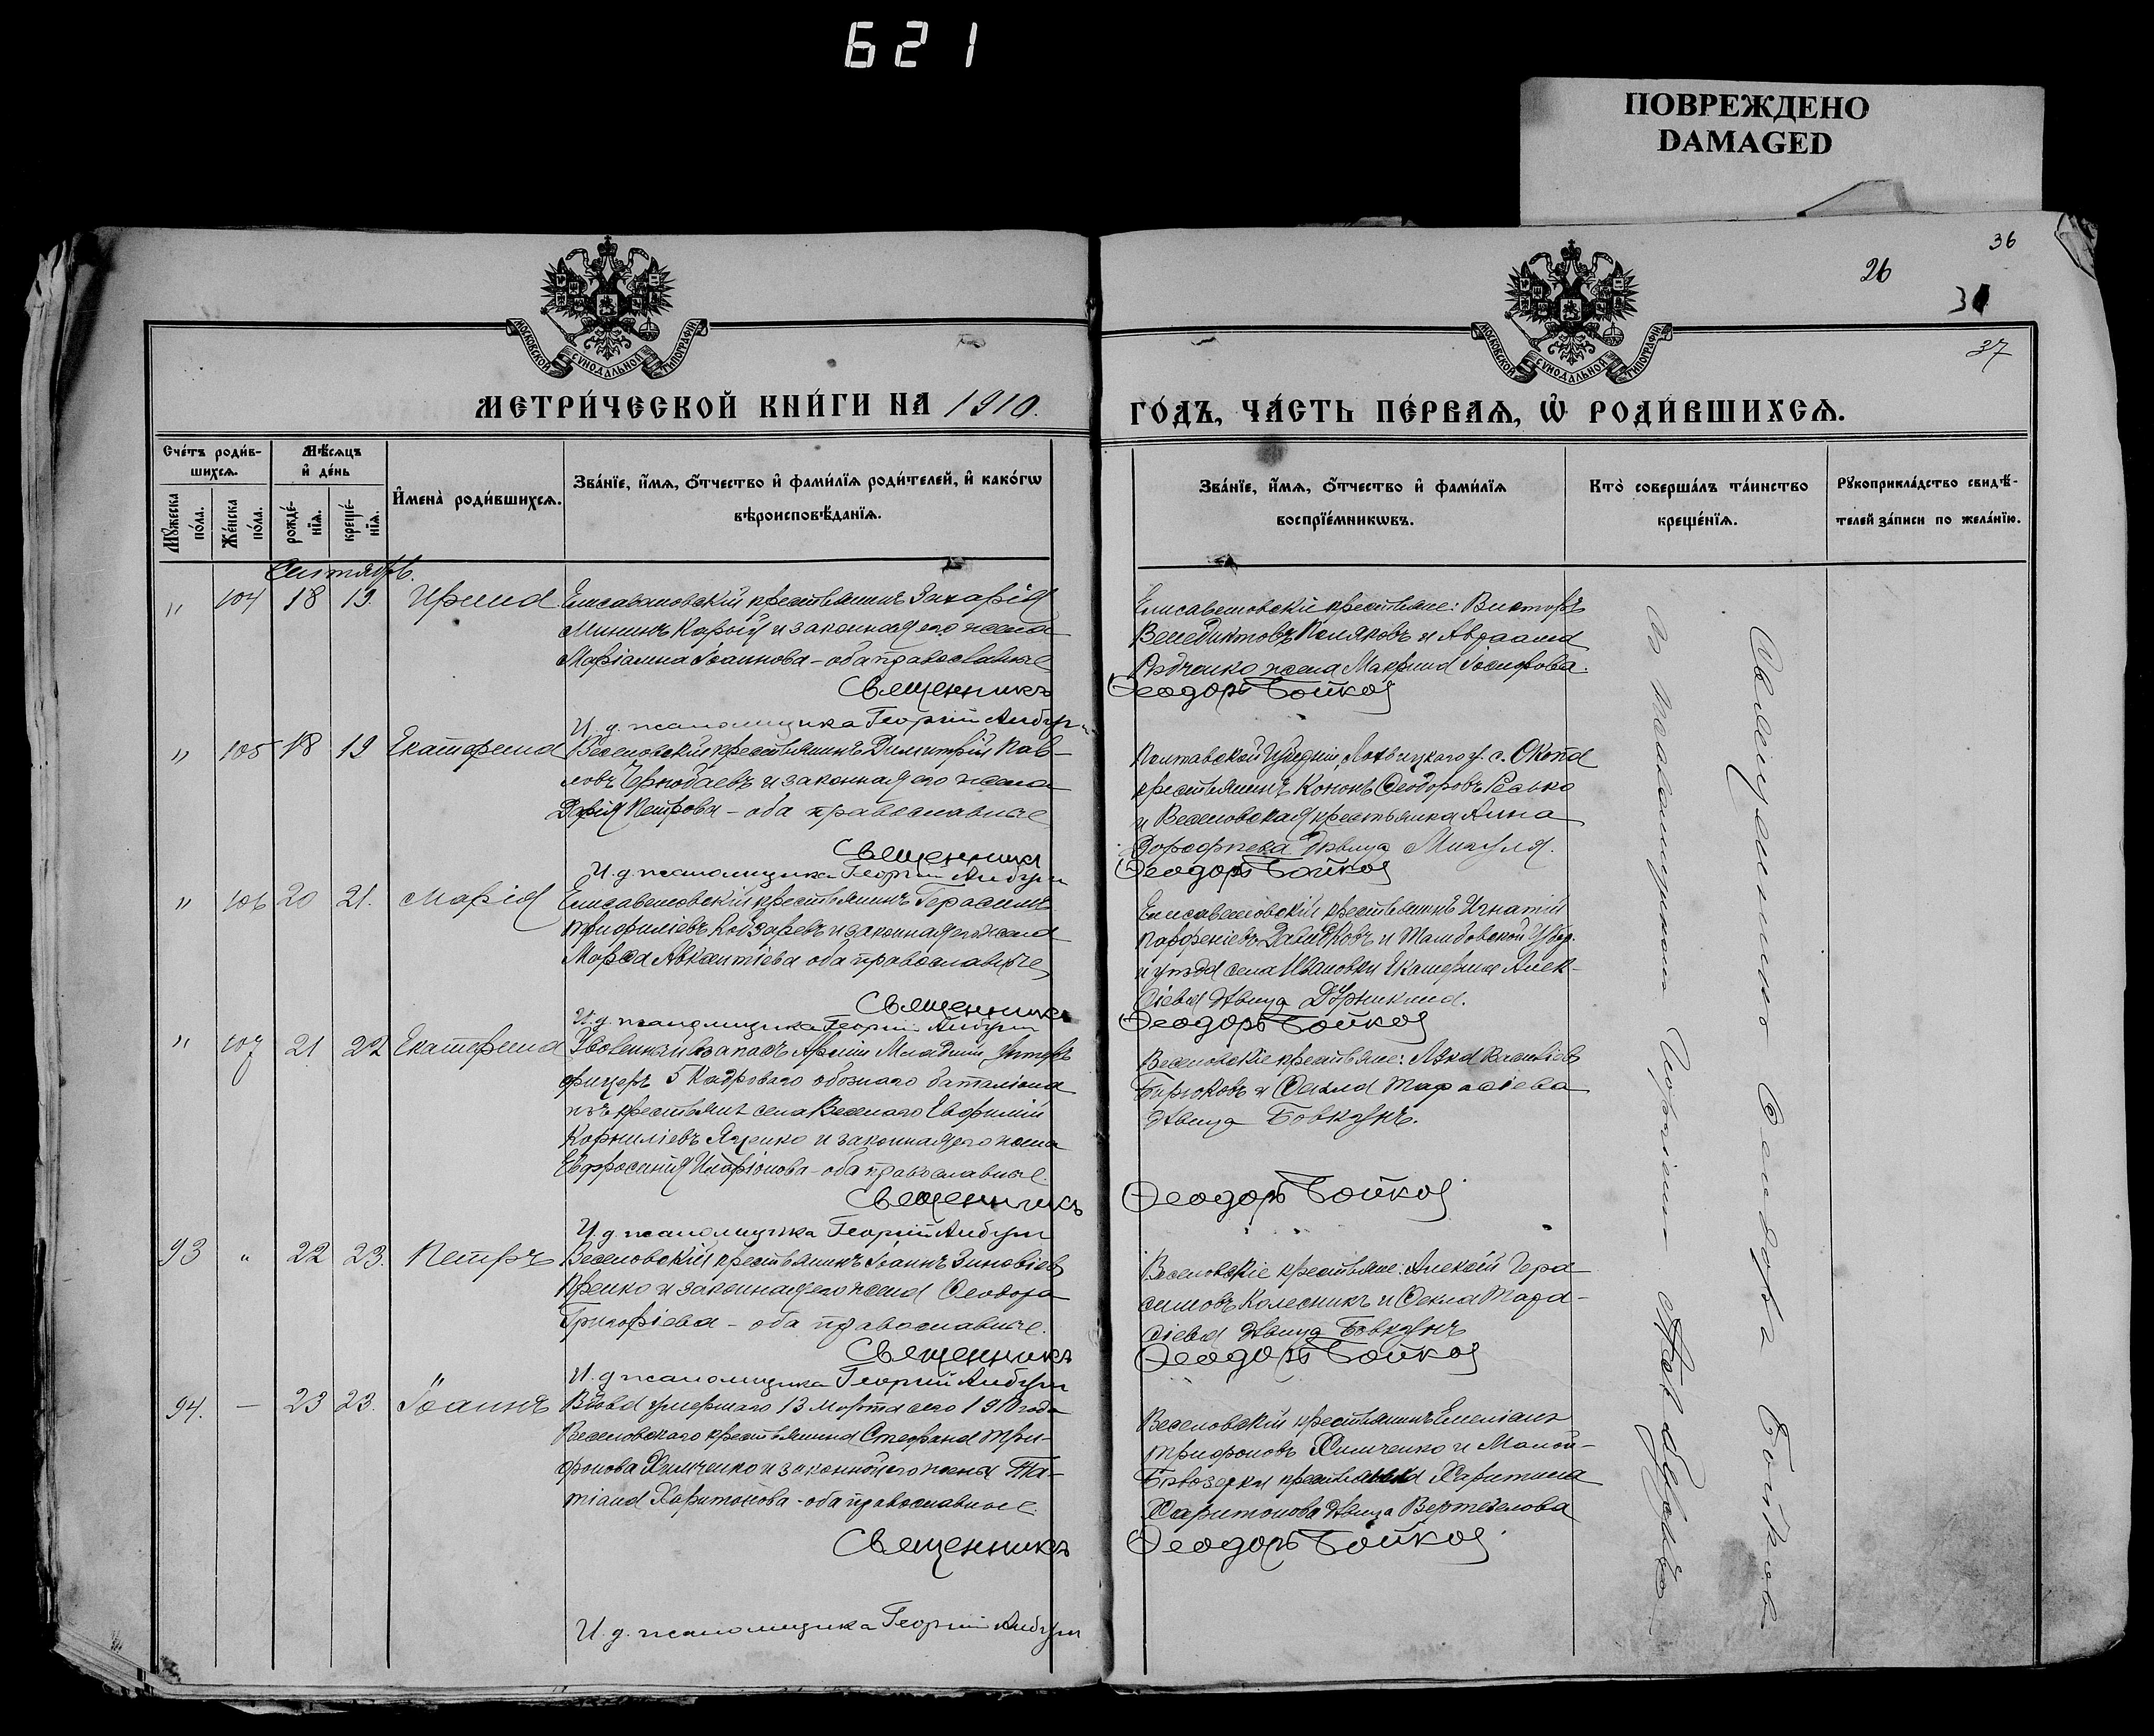 621
ПОВРЕЖДЕНО
DAMAGED
36
26
31
37
МОСКОВСКОЙ СУНОДАЛЬНОЙ ТИПОГРАФІИ
МОСКОВСКОЙ СУНОДАЛЬНОЙ ТИПОГРАФІИ
МЕТРИ́ЧЕСКОЙ КНИ́ГИ НА 1910.
ГО́ДЪ, ЧА́СТЬ ПЕ́РВАѦ, Ѡ҆ РОДИ́ВШИХСѦ.
Сче́тъ роди́в-
шихсѧ.
Мѣ́сѧцъ
и҆ де́нь
Мꙋ́жеска по́ла.
Же́нска по́ла.
рожде́-нїѧ.
креще́-нїѧ.
И҆мена̀ роди́вшихсѧ.
Зва́нїе, и҆́мѧ, ѻ҆́тчество и҆ фами́лїѧ роди́телей, и҆ како́гѡ
вѣроисповѣ́данїѧ.
Зва́нїе, и҆́мѧ, ѻ҆́тчество и҆ фами́лїѧ
воспрїе́мникѡвъ.
Кто̀ соверша́лъ та́инство
креще́нїѧ.
Рꙋкоприкла́дство свидѣ́-
телей за́писи по жела́нїю.
Сентябрь.
" 104 18 19. Ирина Елисаветовскій крестьянинъ Захарія
Мининъ Карый и законная его жена
Маріамна Іоаннова – оба православные
Священникъ
И. д. псаломщика Георгій
Елисаветовскіе крестьяне: Викторъ
Венедиктовъ Поляковъ и Авраама
Рядченко жена Макрина Іосифова.
Ѳеодоръ Бойковъ
" 105 18 19 Екатерина Веселовскій крестьянинъ Димитрій Пав-
ловъ Чернобаевъ и законная его жена
Дарія Петрова – оба православные
Священникъ
И. д. псаломщика Георгій
Полтавской губерніи, Лохвицкаго у. с. Окопа
крестьянинъ Кононъ Ѳеодоровъ
и Веселовская крестьянка Анна
Дороѳеева дѣвица
Ѳеодоръ Бойковъ
" 106 20 21. Марія Елисаветовскій крестьянинъ Герасимъ
Трифиліевъ и законная его жена
Марѳа Авксентіева оба православные
Священникъ
И. д. псаломщика Георгій
Елисаветовскій крестьянинъ Игнатій
Парфеніевъ Давидковъ и Тамбовской губер.
и уѣзда села Ивановки Екатерина Алек-
сіева дѣвица
Ѳеодоръ Бойковъ
" 107 21 22 Екатерина Уволенный въ запасъ Арміи Младшій унтеръ
фицеръ 5 Кадроваго обознаго баталіона
изъ крестьянъ села Веселаго Евфимій
Корниліевъ Яценко и законная его жена
Евфросинія Иларіонова – оба православные.
Священникъ
И. д. псаломщика Георгій
Веселовскіе крестьяне: Лука Васильевъ
Бирюковъ и Ѳекла Тарасіева
дѣвица Бовкунъ.
Ѳеодоръ Бойковъ
93 " 22 23. Петръ Веселовскій крестьянинъ Іоаннъ Зиновіевъ
и законная его жена Ѳеодора
Григоріева – оба православные.
Священникъ
И. д. псаломщика Георгій
Веселовскіе крестьяне: Алексѣй Гера-
симовъ Колесникъ и Ѳекла Тара-
сіева дѣвица Бовкунъ
Ѳеодоръ Бойковъ
94. — 23 23. Іоаннъ Вдова умершаго 13 Марта сего 1910 года
Веселовскаго крестьянина Стефана Три-
фонова Химченко и законной его жены Та-
тіана Харитонова – оба православные.
Священникъ
И. д. псаломщика Георгій
Веселовскій крестьянинъ Емеліанъ
Трифоновъ Химченко и Малой-
Бѣлозерки крестьянка Харитина
Харитонова дѣвица
Ѳеодоръ Бойковъ
Священникъ Ѳеодоръ Бойковъ
съ псаломщикомъ Георгіемъ